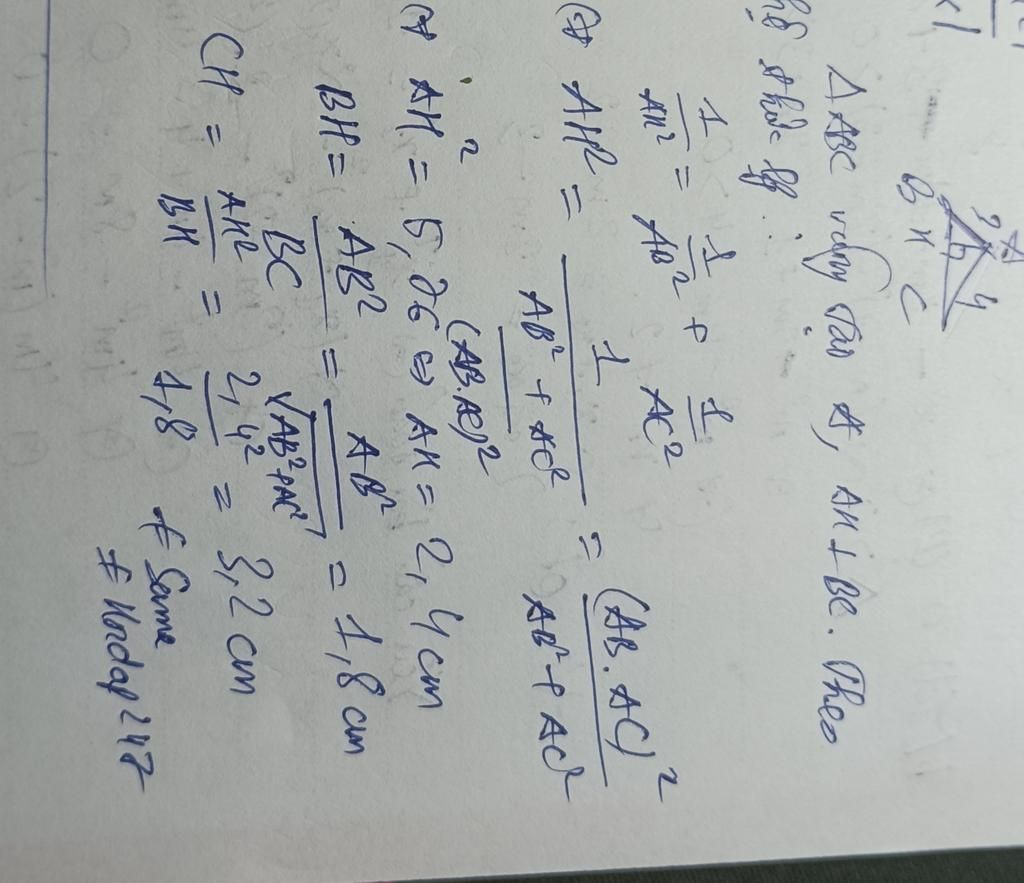 A
3 4
B H C
Δ ABC vuông tại A, AH ⊥ BC. Theo
hệ thức
1/AH² = 1/AB² + 1/AC²
⇔ AH² = 1/((AB² + AC²)/(AB.AC)²) = (AB.AC)²/(AB² + AC²)
⇔ AH² = 5,76 ⇔ AH = 2,4 cm
BH = AB²/BC = AB²/√(AB²+AC²) = 1,8 cm
CH = AH²/BH = 2,4²/1,8 = 3,2 cm
# Same
# Hoidap247